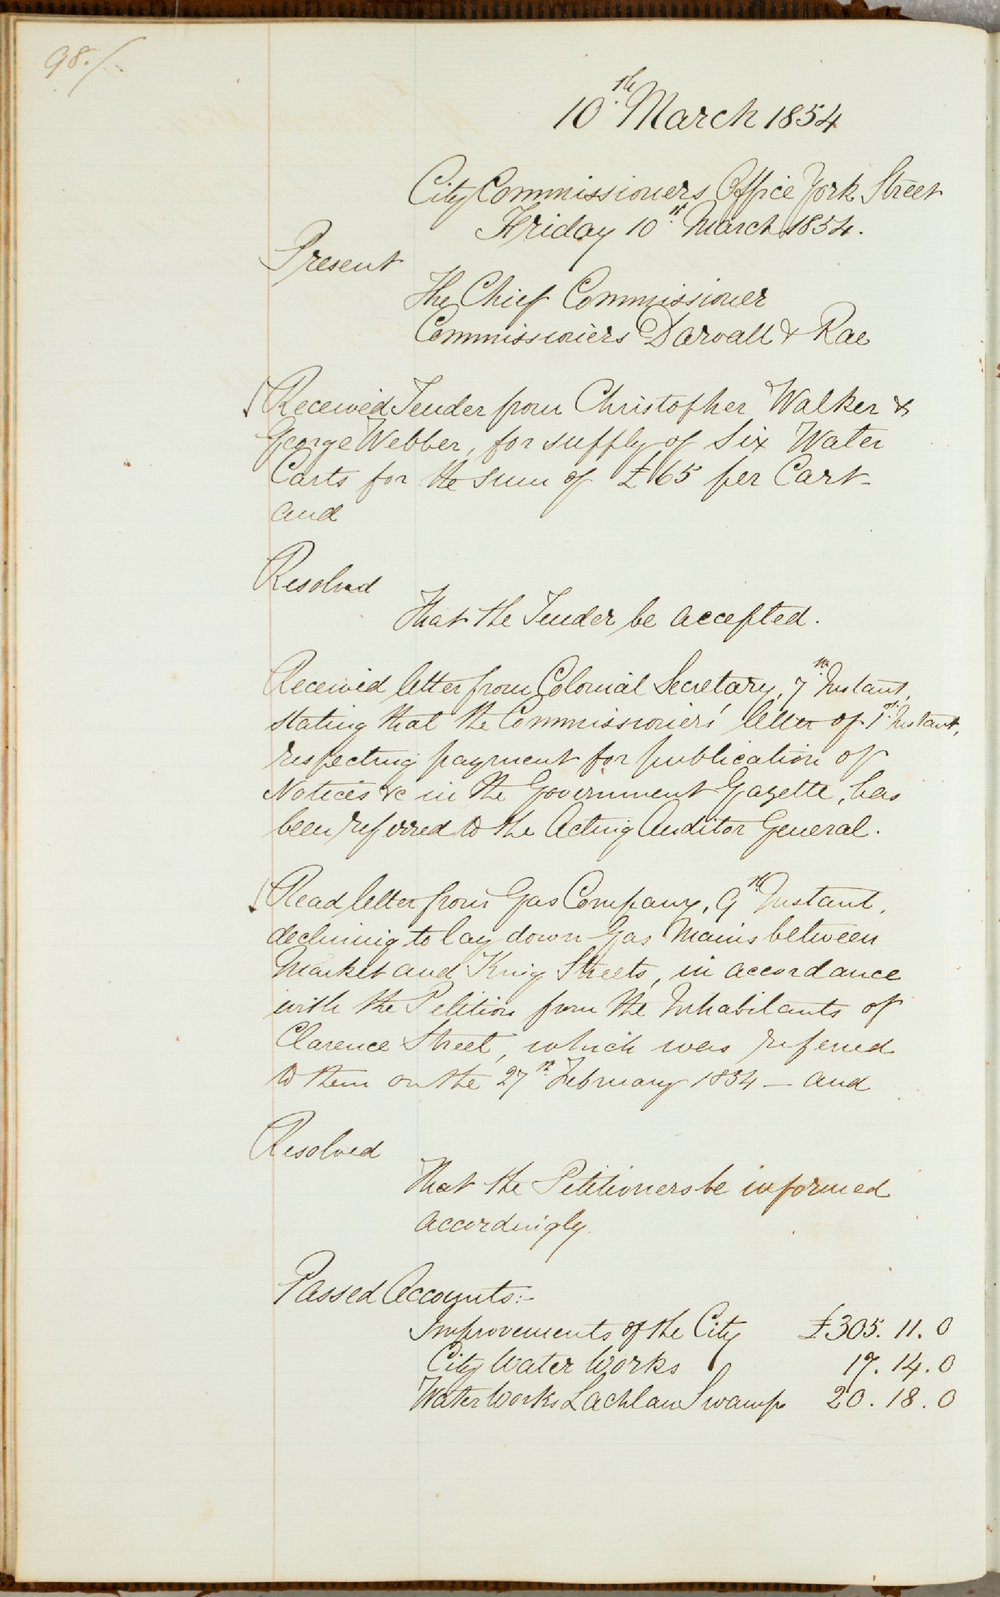 98./
10th March 1854
City Commissioners Office York Street
Friday 10th March 1854.
Present
The Chief Commissioner
Commissioners Darvall & Rae
Received Tender from Christopher Walker &
George Webber, for supply of Six Water
Carts for the sum of £65 per Cart-
and
Resolved
That the Tender be accepted.
Received letter from Colonial Secretary, 7th Instant,
stating that the Commissioners' letter of 1st Instant,
respecting payment for publication of
Notices &c in the Government Gazette, has
been referred to the Acting Auditor General.
Read letter from Gas Company, 9th Instant,
declining to lay down Gas Mains between
Market and King Streets, in accordance
with the Petition from the Inhabitants of
Clarence Street, which was referred
to them on the 27th February 1854 – and
Resolved
That the Petitioners be informed
accordingly.
Passed Accounts:-
Improvements of the City £305. 11. 0
City Water Works 17. 14. 0
Water Works Lachlan Swamp 20. 18. 0